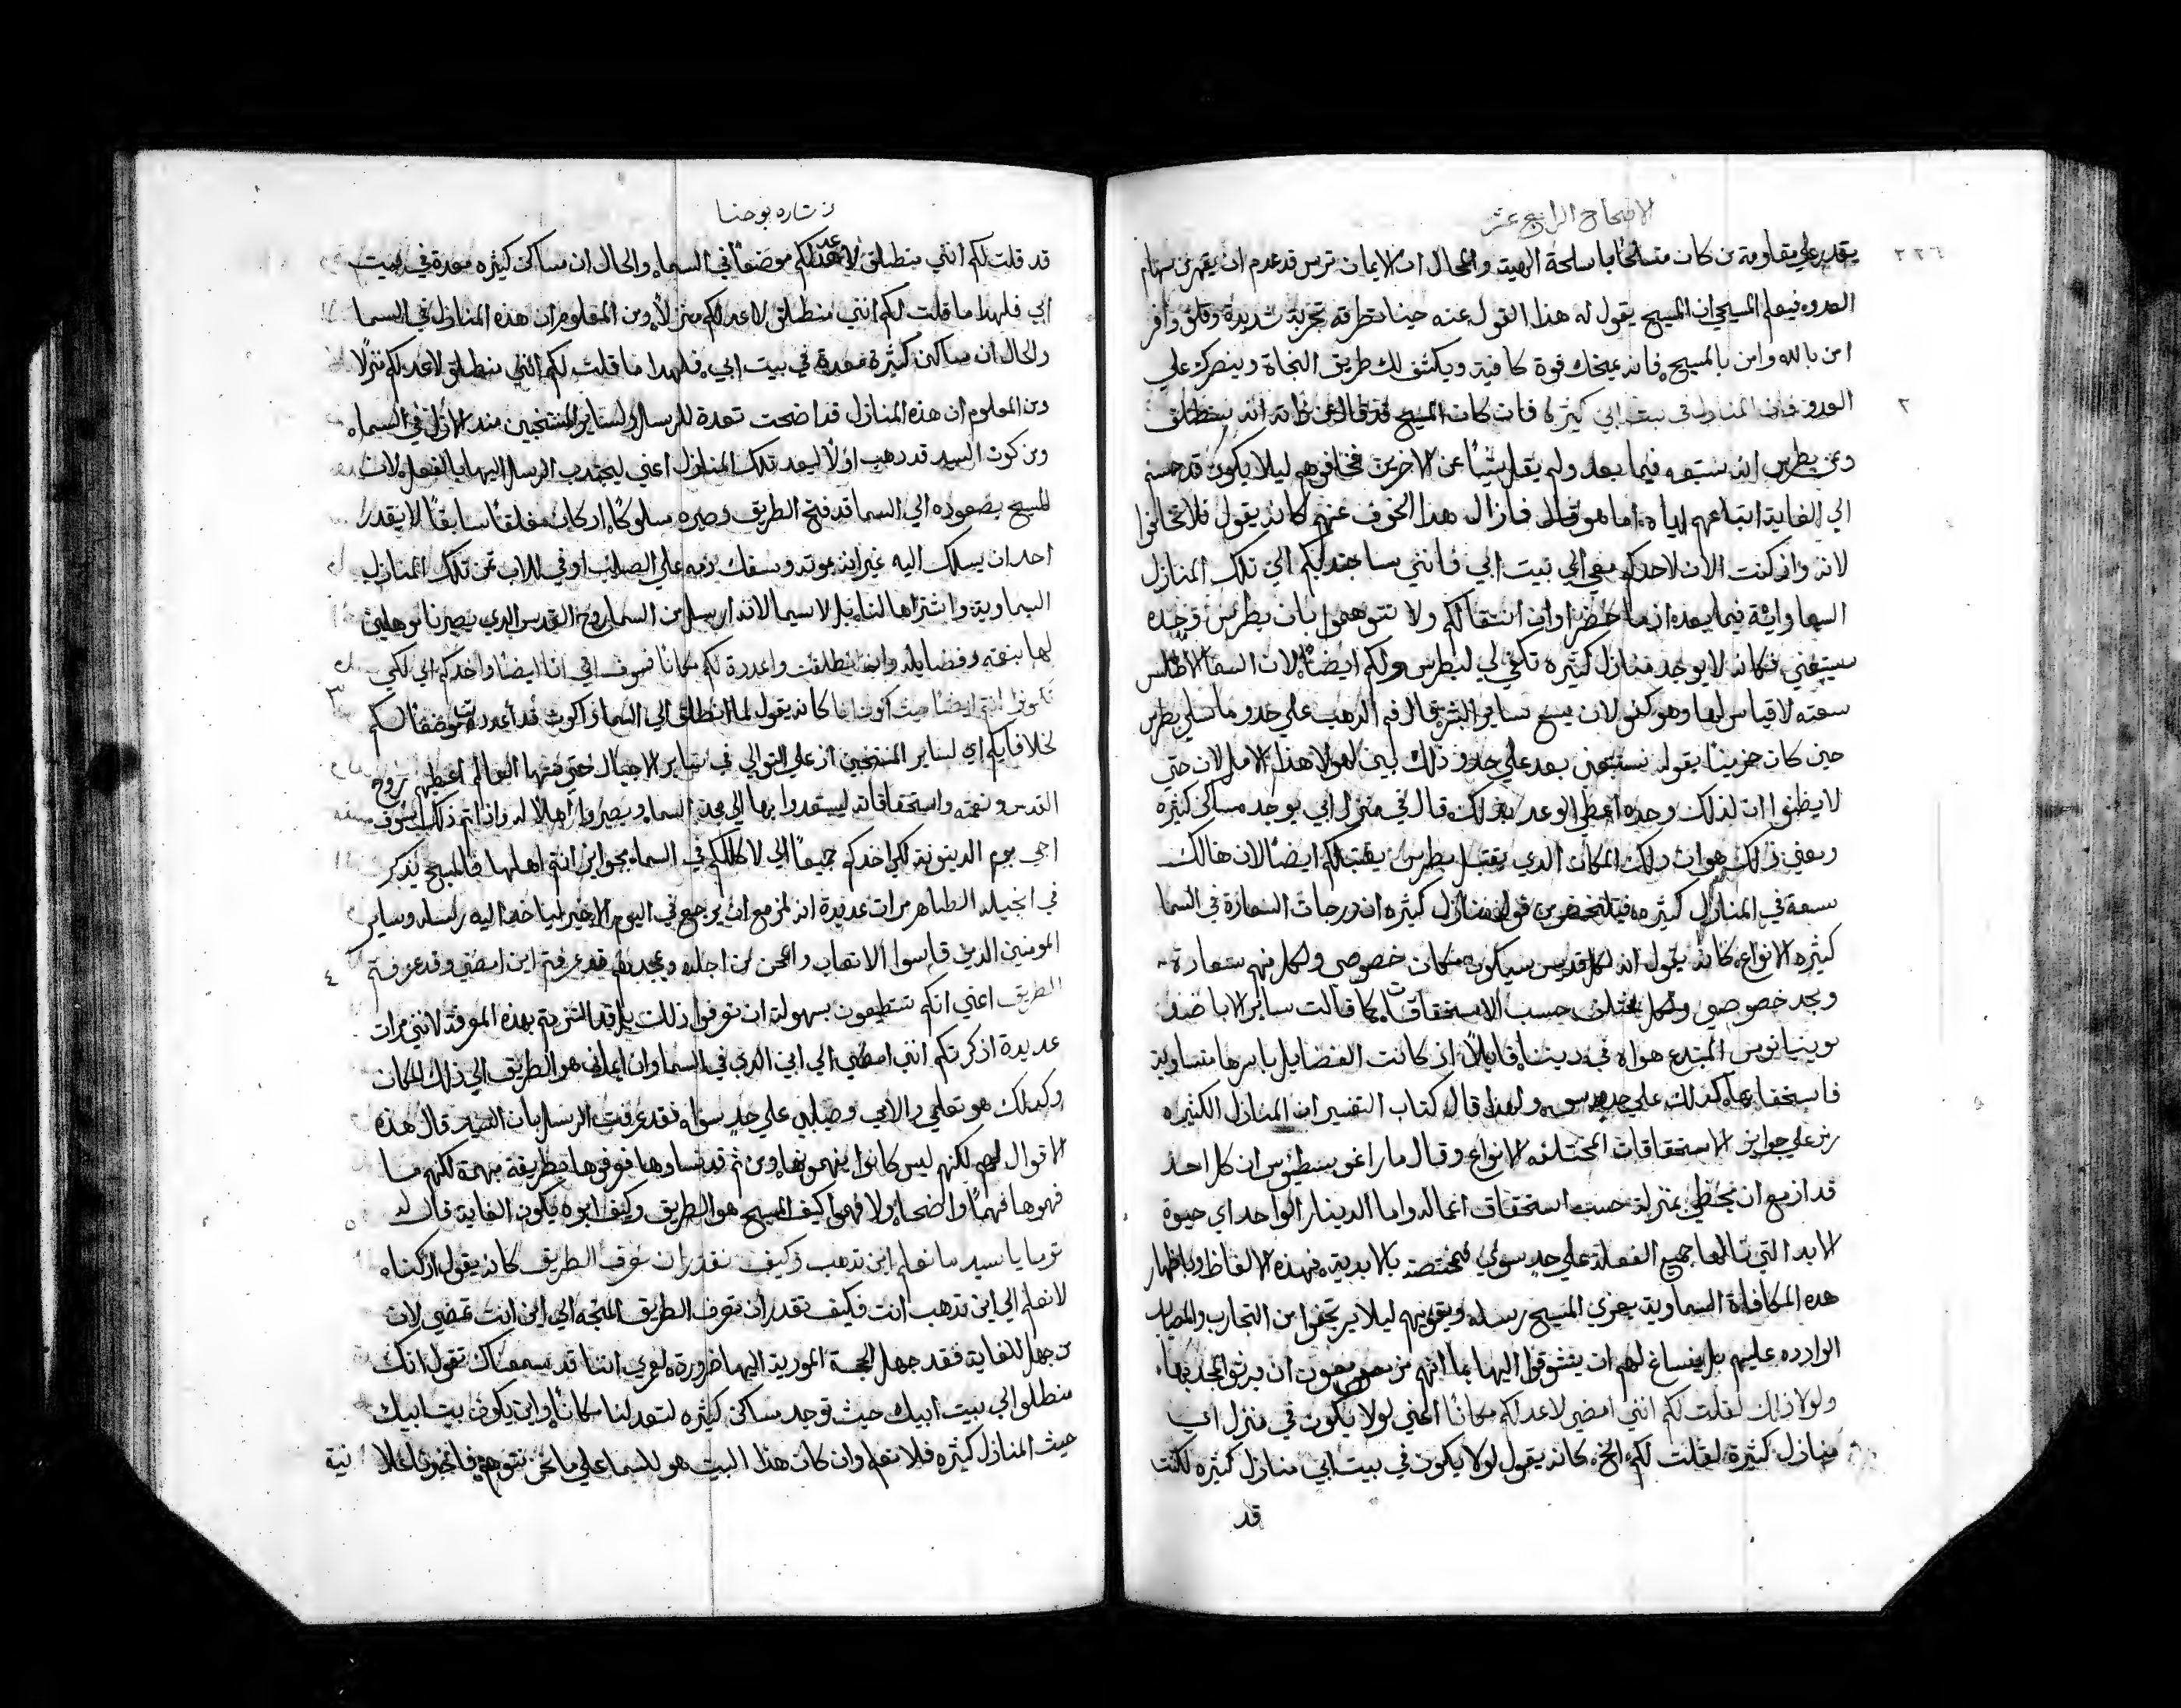 الاصحاح الرابع عشر
٢٢٦
يقدر علي مقاومة من كان متسلحًا باسلحة الهية والحال ان الايمان ترس قد عدم ان يقهر من سهام
العدو فيعلم المسيحي ان المسيح يقول له هذا القول عنه حينما تطرقه تجربة شديدة وقلق وافر
امن بالله وامن بالمسيح فانه يمنحك قوة كافية ويكشف لك طريق النجاة وينصرك علي
٢
العدو فان المنازل في بيت ابي كثيرة فان كان المسيح قد قال عن ذاته انه ينطلق
وعن بطرس انه ستبعه فيما بعد ولم يقل شيًا عن الاخرين فخافوهم ليلا يكون قد حسم
الي الغاية اتباعهم اياه اما هو قال فازال هذا الخوف عنهم كانه يقول فلا تخافوا
لانه وان كنت الان لاحدكم معي الي بيت ابي فانني ساجتذبكم الي تلك المنازل
السماوية فيما بعد اذ ما حضر اوان انتقالكم ولا تتوهموا بان بطرس وحده
سيتبعني فكانه لا يوجد منازل كثيرة تكفي لي لبطرس ولكم ايضًا لان السما الاطلس
سعته لا قياس لها وهو كفو لان يسع ساير البشر قال فم الذهب علي حدو ما سلي بطرس
حين كان حزينًا بقوله ستتبعني بعد علي حدو ذلك بين لهولا هذا الامل لان حتي
لا يظنوا ان لذلك وحده اعطي الوعد بذلك قال في منزل ابي يوجد مساكن كثيرة
ومعني ذلك هو ان ذلك المكان الذي يقبل بطرس يقبلكم ايضًا لان هنالك
سعة في المنازل كثيره فيتلخص من قوله منازل كثيره ان درجات السعادة في السما
كثيره الانواع كانه يقول انه لكل قديس سيكون مكان خصوصي ولكل منهم سعادة
ومجد خصوصي ولكل يختلف حسب الاستحقاقات كما قالت ساير الابا ضد
يوبنيانوس المبتدع هواه في ديننا قايلًا اذ كانت الفضايل باسرها متساوية
فاستحقاقها كذلك علي حد سوي ولهذا قال كتاب التفسير ان المنازل الكثيره
رمز علي جوايز الاستحقاقات المختلفه الانواع وقال مار اغوسطينوس ان كل احد
قد ازمع ان يحظي بمنزلة حسب استحقاق اعماله واما الدينار الواحد اي حيوة
الابد التي نالها جميع الفعلة علي حد سوي فمختصة بالابدية فبهذه الالفاظ وباظهار
هذه المكافاة السماوية يعزي المسيح رسله ويقويهم ليلا يرتجفوا من التجارب والمصايب
الوارده عليهم بل ينساغ لهم ان يتشوقوا اليها بما انهم مزمعون ان يرثوا المجد بها
ولولا ذلك لقلت لكم انني امضي لاعد لكم مكانًا المعني لولا يكون في منزل ابي
منازل كثيرة لقلت لكم الخ كانه يقول لولا يكون في بيت ابي منازل كثيره لكنت
قد
بشاره يوحنا
قد قلت لكم انني منطلق لاعد لكم موضعًا في السما والحال ان مساكن كثيره معدة في بيت
ابي فلهذا ما قلت لكم انني منطلق لاعد لكم منزلًا ومن المعلوم ان هذه المنازل في السما
والحال ان مساكن كثيرة معدة في بيت ابي فلهذا ما قلت لكم انني منطلق لاعد لكم منزلًا
ومن المعلوم ان هذه المنازل قد اضحت معدة للرسل ولساير المنتخبين منذ الازل في السما
ومن كون السيد قد ذهب اولًا ليعد تلك المنازل اعني ليجتذب الرسل اليها بالفعل لان
المسيح بصعوده الي السما قد فتح الطريق وصيره مسلوكًا اذ كان مغلقًا سابقًا لا يقدر
احد ان يسلك اليه غير انه بموته وسفك دمه علي الصليب اوفي للاب ثمن تلك المنازل
السماوية واشتراها لنا لا سيما لانه ارسل من السما روح القدس الذي يصيرنا موهلين
لها بنعمته وفضايله وان انطلقت واعددت لكم مكانًا فسوف اتي انا ايضًا واخذكم الي لكي
٣
تكونوا انتم ايضًا حيث اكون انا كانه يقول لما انطلق الي السما واكون قد اعددت موضعًا لكم
لخلافايكم اي لساير المنتخبين اذ علي التوالي في ساير الاجيال حتي منتها العالم اعطيهم روح
القدس ونعمته واستحقاقاته ليستعدوا بها الي مجد السما ويصيروا اهلًا له واذا تم ذلك سوف
اجي يوم الدينونة لكي اخذكم جميعًا الي لاكللكم في السما بجوايز انتم اهلها فالمسيح يذكر
في انجيله الطاهر مرات عديدة انه مزمع ان يرجع في اليوم الاخير لياخذ اليه رسله وساير
٤
المومنين الذين قاسوا الاتعاب والمحن من اجله ويمجدهم قد عرفتم اين امضي وقد عرفتم
الطريق اعني انكم تستطيعون بسهولة ان تعرفوا ذلك بل قد التزمتم بهذه المعرفة لانني مرات
عديدة اذكرتكم انني امضي الي ابي الذي في السما وان ايماني هو الطريق الي ذلك المكان
وكذلك هو تعليمي والامي وصليبي علي حد سوا فقد عرفت الرسل بان السيد قال هذه
الاقوال لهم لكنهم ليس كانوا يفهمونها ومن ثم قد نسوها فعرفوها بطريقة مبهمة لكنهم ما
٥
فهموها فهمًا واضحا ولا فهموا كيف المسيح هو الطريق وكيف ابوه يكون الغاية قال له
توما يا سيد ما نعلم اين تذهب وكيف نقدر ان نعرف الطريق كانه يقول ان كنا
لا نعلم الي اين تذهب انت فكيف نقدر ان نعرف الطريق المتجه الي اين انت تمضي لان
من جهل الغاية فقد جهل المحجة المورية اليها ضرورة لعمري اننا قد سمعناك تقول انك
منطلق الي بيت ابيك حيث توجد مساكن كثيره لتعد لنا مكانًا واين يكون بيت ابيك
حيث المنازل كثيره فلا نعلم وان كان هذا البيت هو للسما علي ما نحن نتوهم فاخبرنا علانية